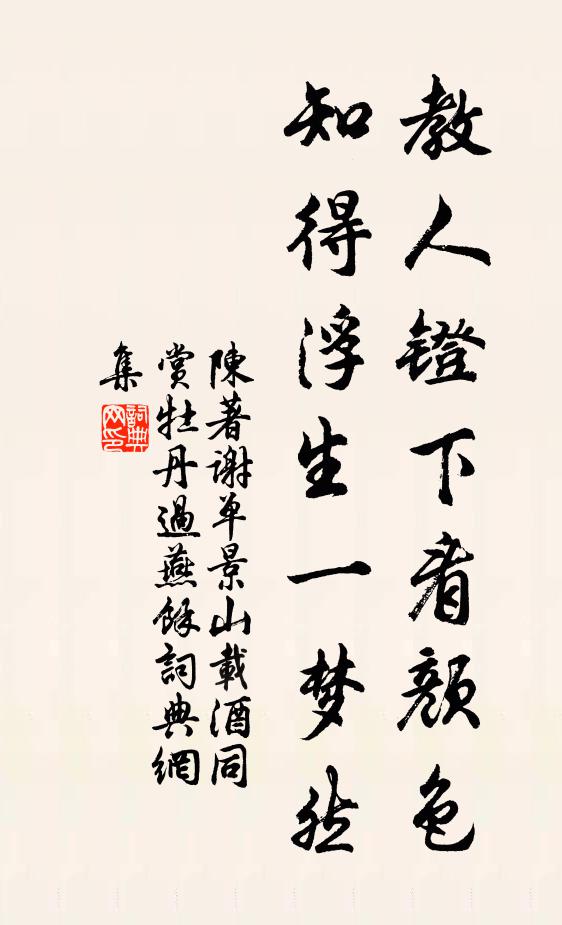 教人鐙下看顏色
知得浮生一梦然
陳著謝单景山載酒同
賞牡丹過燕餘詞典網
集
詞典网印